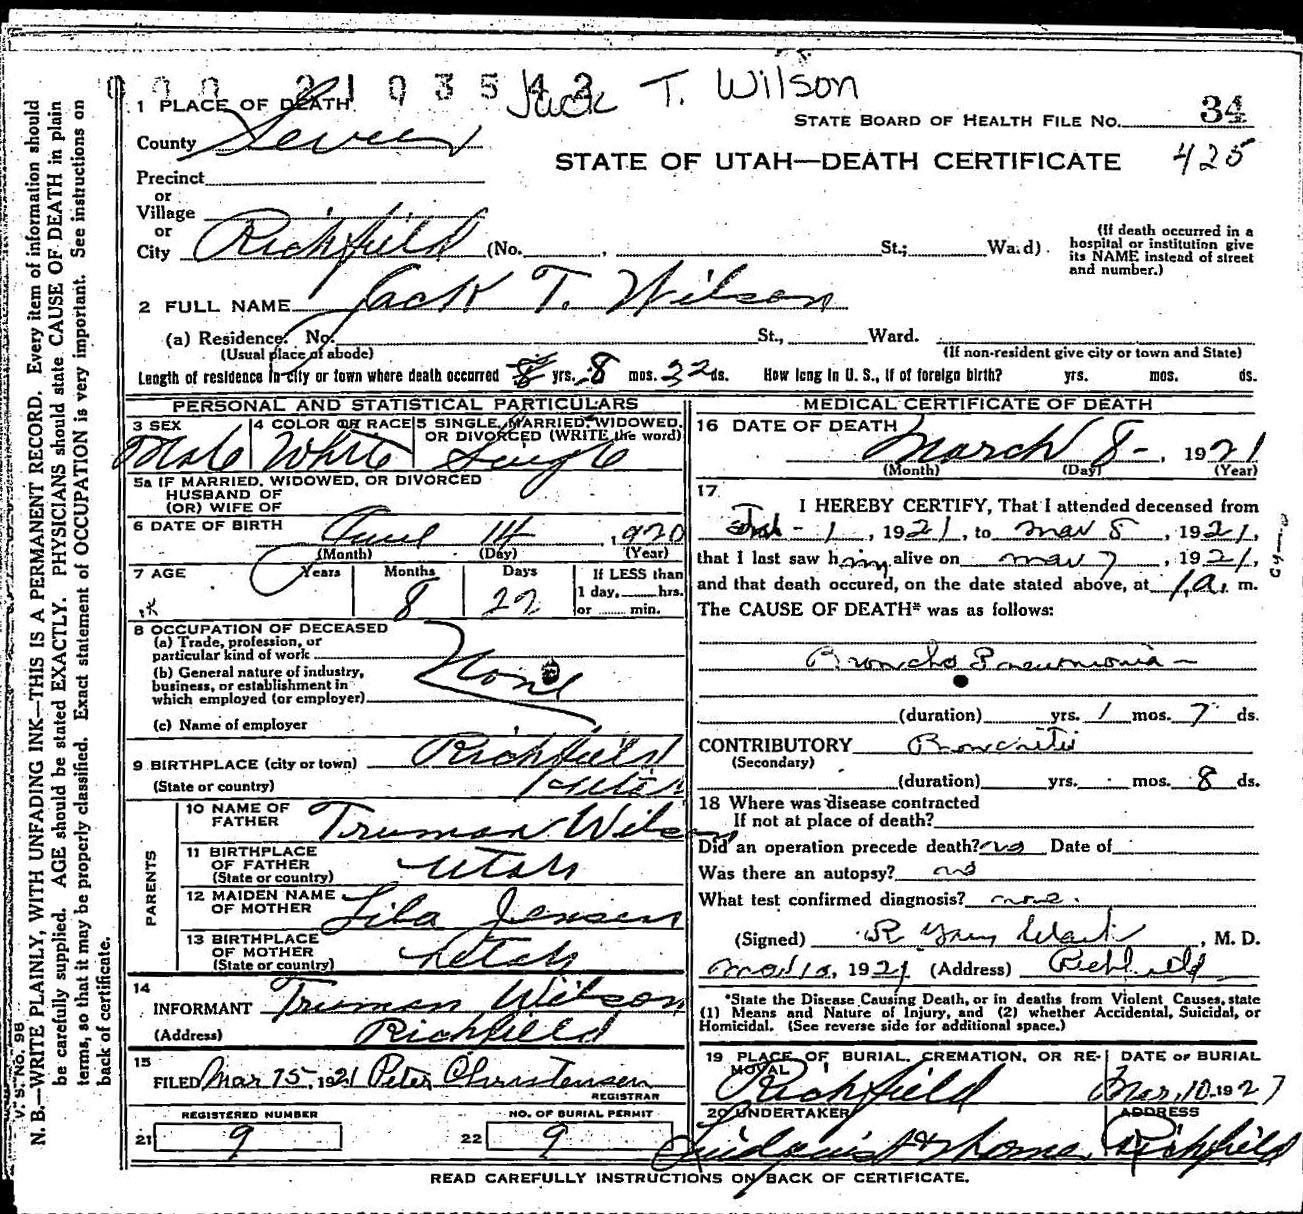 Jack T. Wilson
1 PLACE OF DEATH
STATE BOARD OF HEALTH FILE No. 34
County Sevier
STATE OF UTAH—DEATH CERTIFICATE 425
Precinct
or
Village
or
City Richfield (No. , St.; Ward)
(If death occurred in a
hospital or institution give
its NAME instead of street
and number.)
2 FULL NAME Jack T. Wilson
(a) Residence. No. St., Ward.
(Usual place of abode) (If non-resident give city or town and State)
Length of residence in city or town where death occurred yrs. 8 mos. 22 ds. How long in U. S., if of foreign birth? yrs. mos. ds.
PERSONAL AND STATISTICAL PARTICULARS
3 SEX 4 COLOR OR RACE 5 SINGLE, MARRIED, WIDOWED,
OR DIVORCED (WRITE the word)
Male White Single
5a IF MARRIED, WIDOWED, OR DIVORCED
HUSBAND OF
(OR) WIFE OF
6 DATE OF BIRTH June 14, 1920
(Month) (Day) (Year)
7 AGE Years Months Days If LESS than
1 day, hrs.
8 22 or min.
8 OCCUPATION OF DECEASED
(a) Trade, profession, or
particular kind of work
(b) General nature of industry,
business, or establishment in
which employed (or employer)
None
(c) Name of employer
9 BIRTHPLACE (city or town) Richfield
(State or country) Utah
PARENTS
10 NAME OF
FATHER Truman Wilson
11 BIRTHPLACE
OF FATHER
(State or country) Utah
12 MAIDEN NAME
OF MOTHER Lila Jensen
13 BIRTHPLACE
OF MOTHER
(State or country) Utah
14
INFORMANT Truman Wilson
(Address) Richfield
15
FILED Mar 15, 1921 Peter Christensen
REGISTRAR
REGISTERED NUMBER NO. OF BURIAL PERMIT
21 9 22 9
MEDICAL CERTIFICATE OF DEATH
16 DATE OF DEATH March 8-, 1921
(Month) (Day) (Year)
17
I HEREBY CERTIFY, That I attended deceased from
- 1, 1921, to Mar 8, 1921,
that I last saw him alive on Mar 7, 1921,
and that death occured, on the date stated above, at 1.a. m.
The CAUSE OF DEATH* was as follows:
Broncho Pneumonia -
(duration) yrs. 1 mos. 7 ds.
CONTRIBUTORY Bronchitis
(Secondary)
(duration) yrs. mos. 8 ds.
18 Where was disease contracted
If not at place of death?
Did an operation precede death? no Date of
Was there an autopsy? no
What test confirmed diagnosis? none.
(Signed) , M. D.
Mar 10, 1921 (Address) Richfield
*State the Disease Causing Death, or in deaths from Violent Causes, state
(1) Means and Nature of Injury, and (2) whether Accidental, Suicidal, or
Homicidal. (See reverse side for additional space.)
19 PLACE OF BURIAL, CREMATION, OR RE-
MOVAL DATE OF BURIAL
Richfield Mar, 10, 1921
20 UNDERTAKER ADDRESS
Richfield
READ CAREFULLY INSTRUCTIONS ON BACK OF CERTIFICATE.
V. S. No. 98
N. B.—WRITE PLAINLY, WITH UNFADING INK—THIS IS A PERMANENT RECORD. Every item of information should
be carefully supplied. AGE should be stated EXACTLY. PHYSICIANS should state CAUSE OF DEATH in plain
terms, so that it may be properly classified. Exact statement of OCCUPATION is very important. See instructions on
back of certificate.